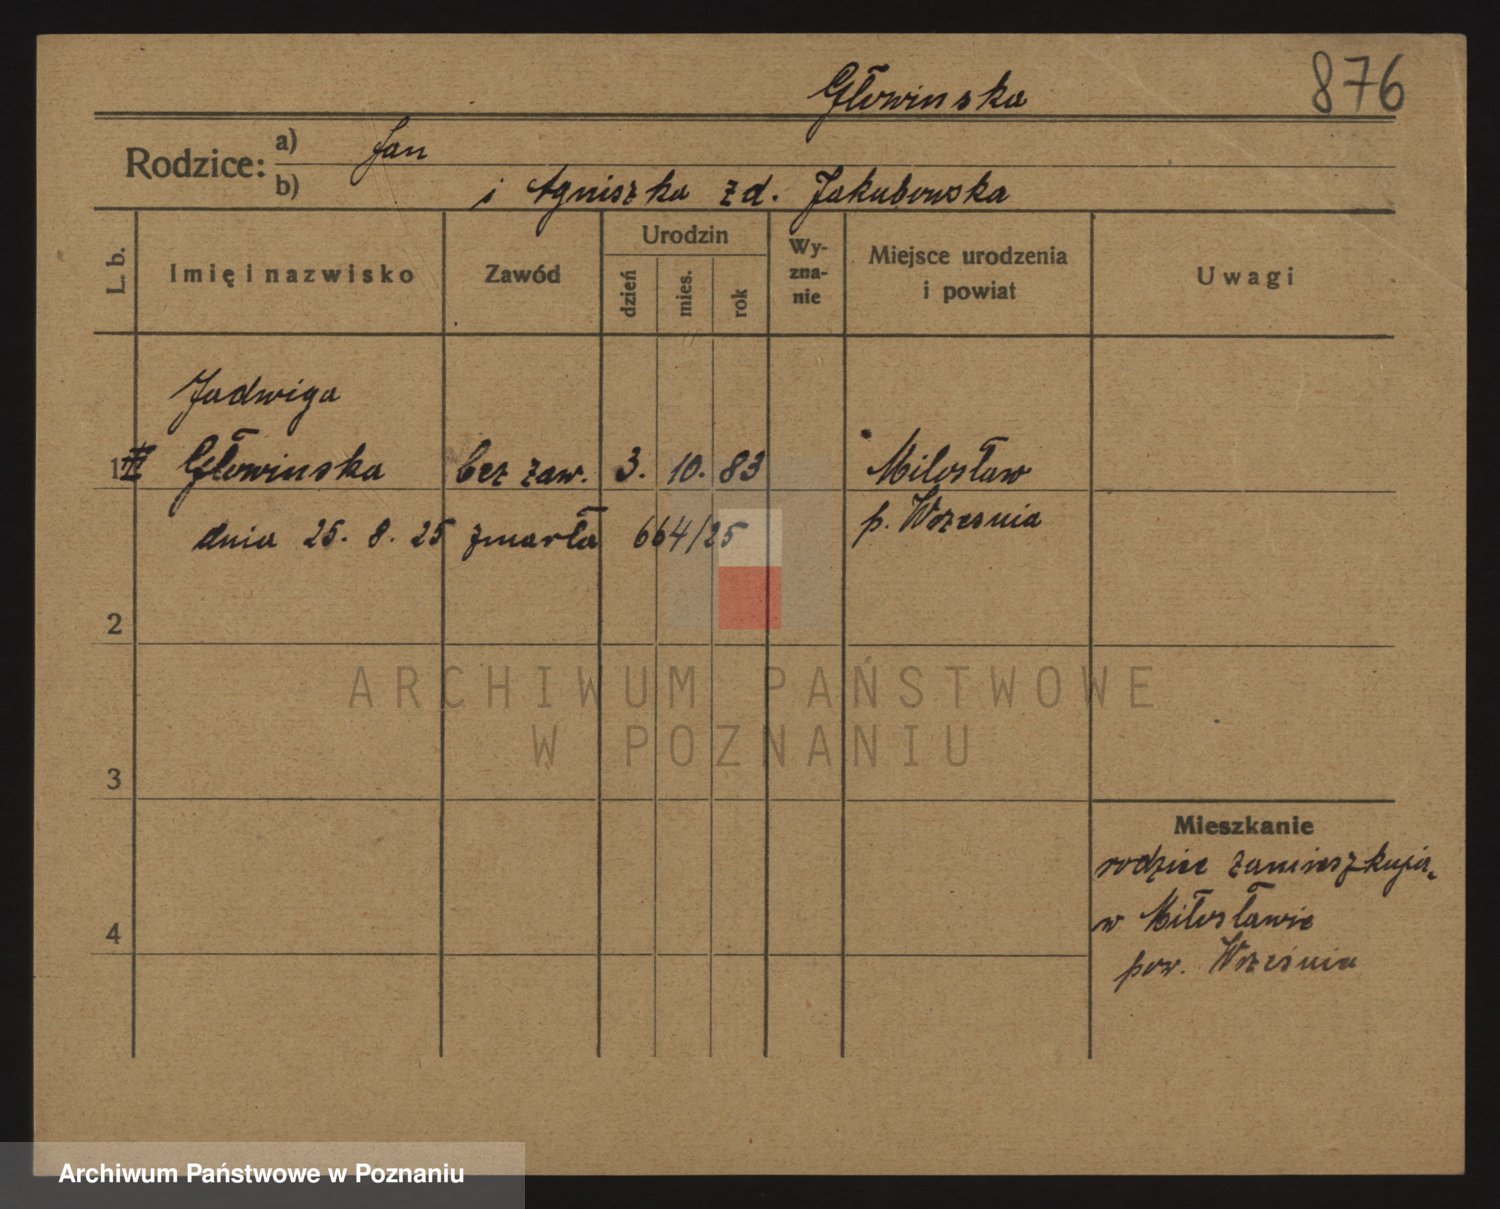 Głowinska 876
Rodzice: a) Jan
b) i Agniszka zd. Jakubowska
L. b. Imię i nazwisko Zawód Urodzin dzień mies. rok Wy-zna-nie Miejsce urodzenia i powiat Uwagi
Jadwiga
1 Głowinska bez zaw. 3. 10. 83 Milosław
dnia 25. 8. 25 zmarła 664/25 p. Wrzesnia
2
ARCHIWUM PAŃSTWOWE
W POZNANIU
3
Mieszkanie
rodzice zamieszkują
w Miłosławie
4
pow. Wrześnin
Archiwum Państwowe w Poznaniu